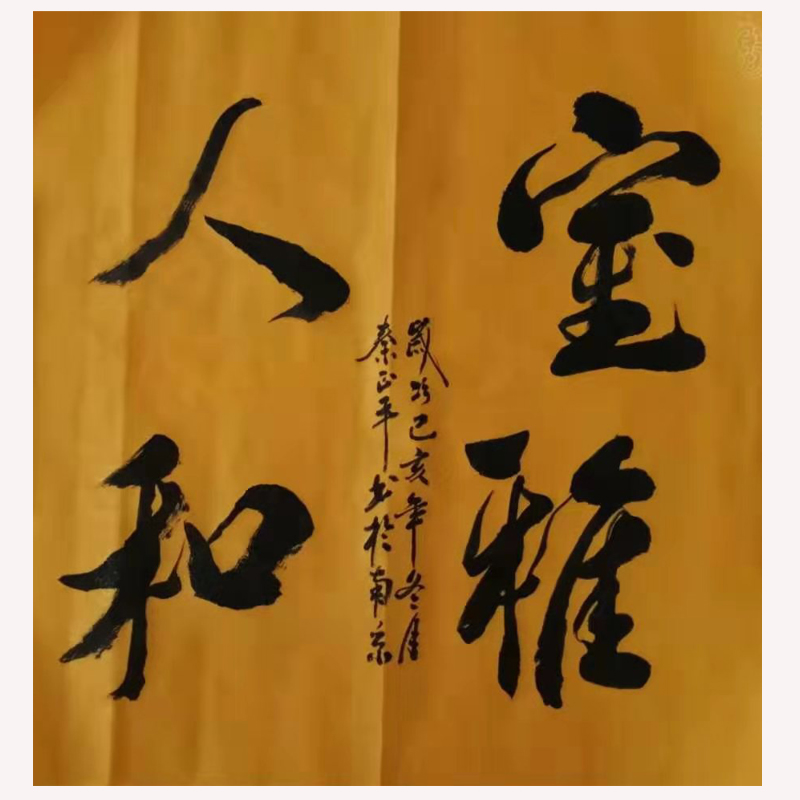 室雅
人和
歲次己亥年冬月
秦正平书於南京